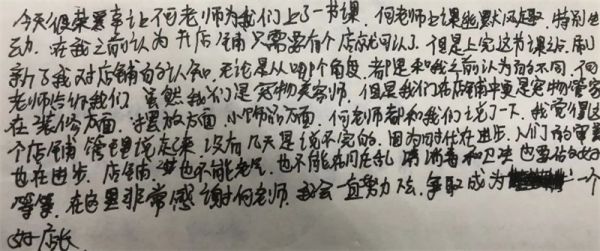 今天很荣幸让何老师为我们上了一书课。何老师上课幽默风趣,特别生
动。在我之前认为开店铺只需要有个店就可以了。但是上完这书课之后,刷
新了我对店铺的认知,无论是从哪个角度,都是和我之前认为的不同。何
老师告诉我们 虽然我们是宠物美容师,但是我们在店铺中更是宠物管家
在装修方面,摆放方面,小饰品方面,何老师都和我们说了一下,我觉得这
个店铺管理说起来没有几天是说不完的。因为时代在进步,人们的审美
也在进步。店铺 也不能 也不能 消毒和卫生也要做好
等等。在这里非常感谢何老师,我会一直努力 争取成为 一个
好店长